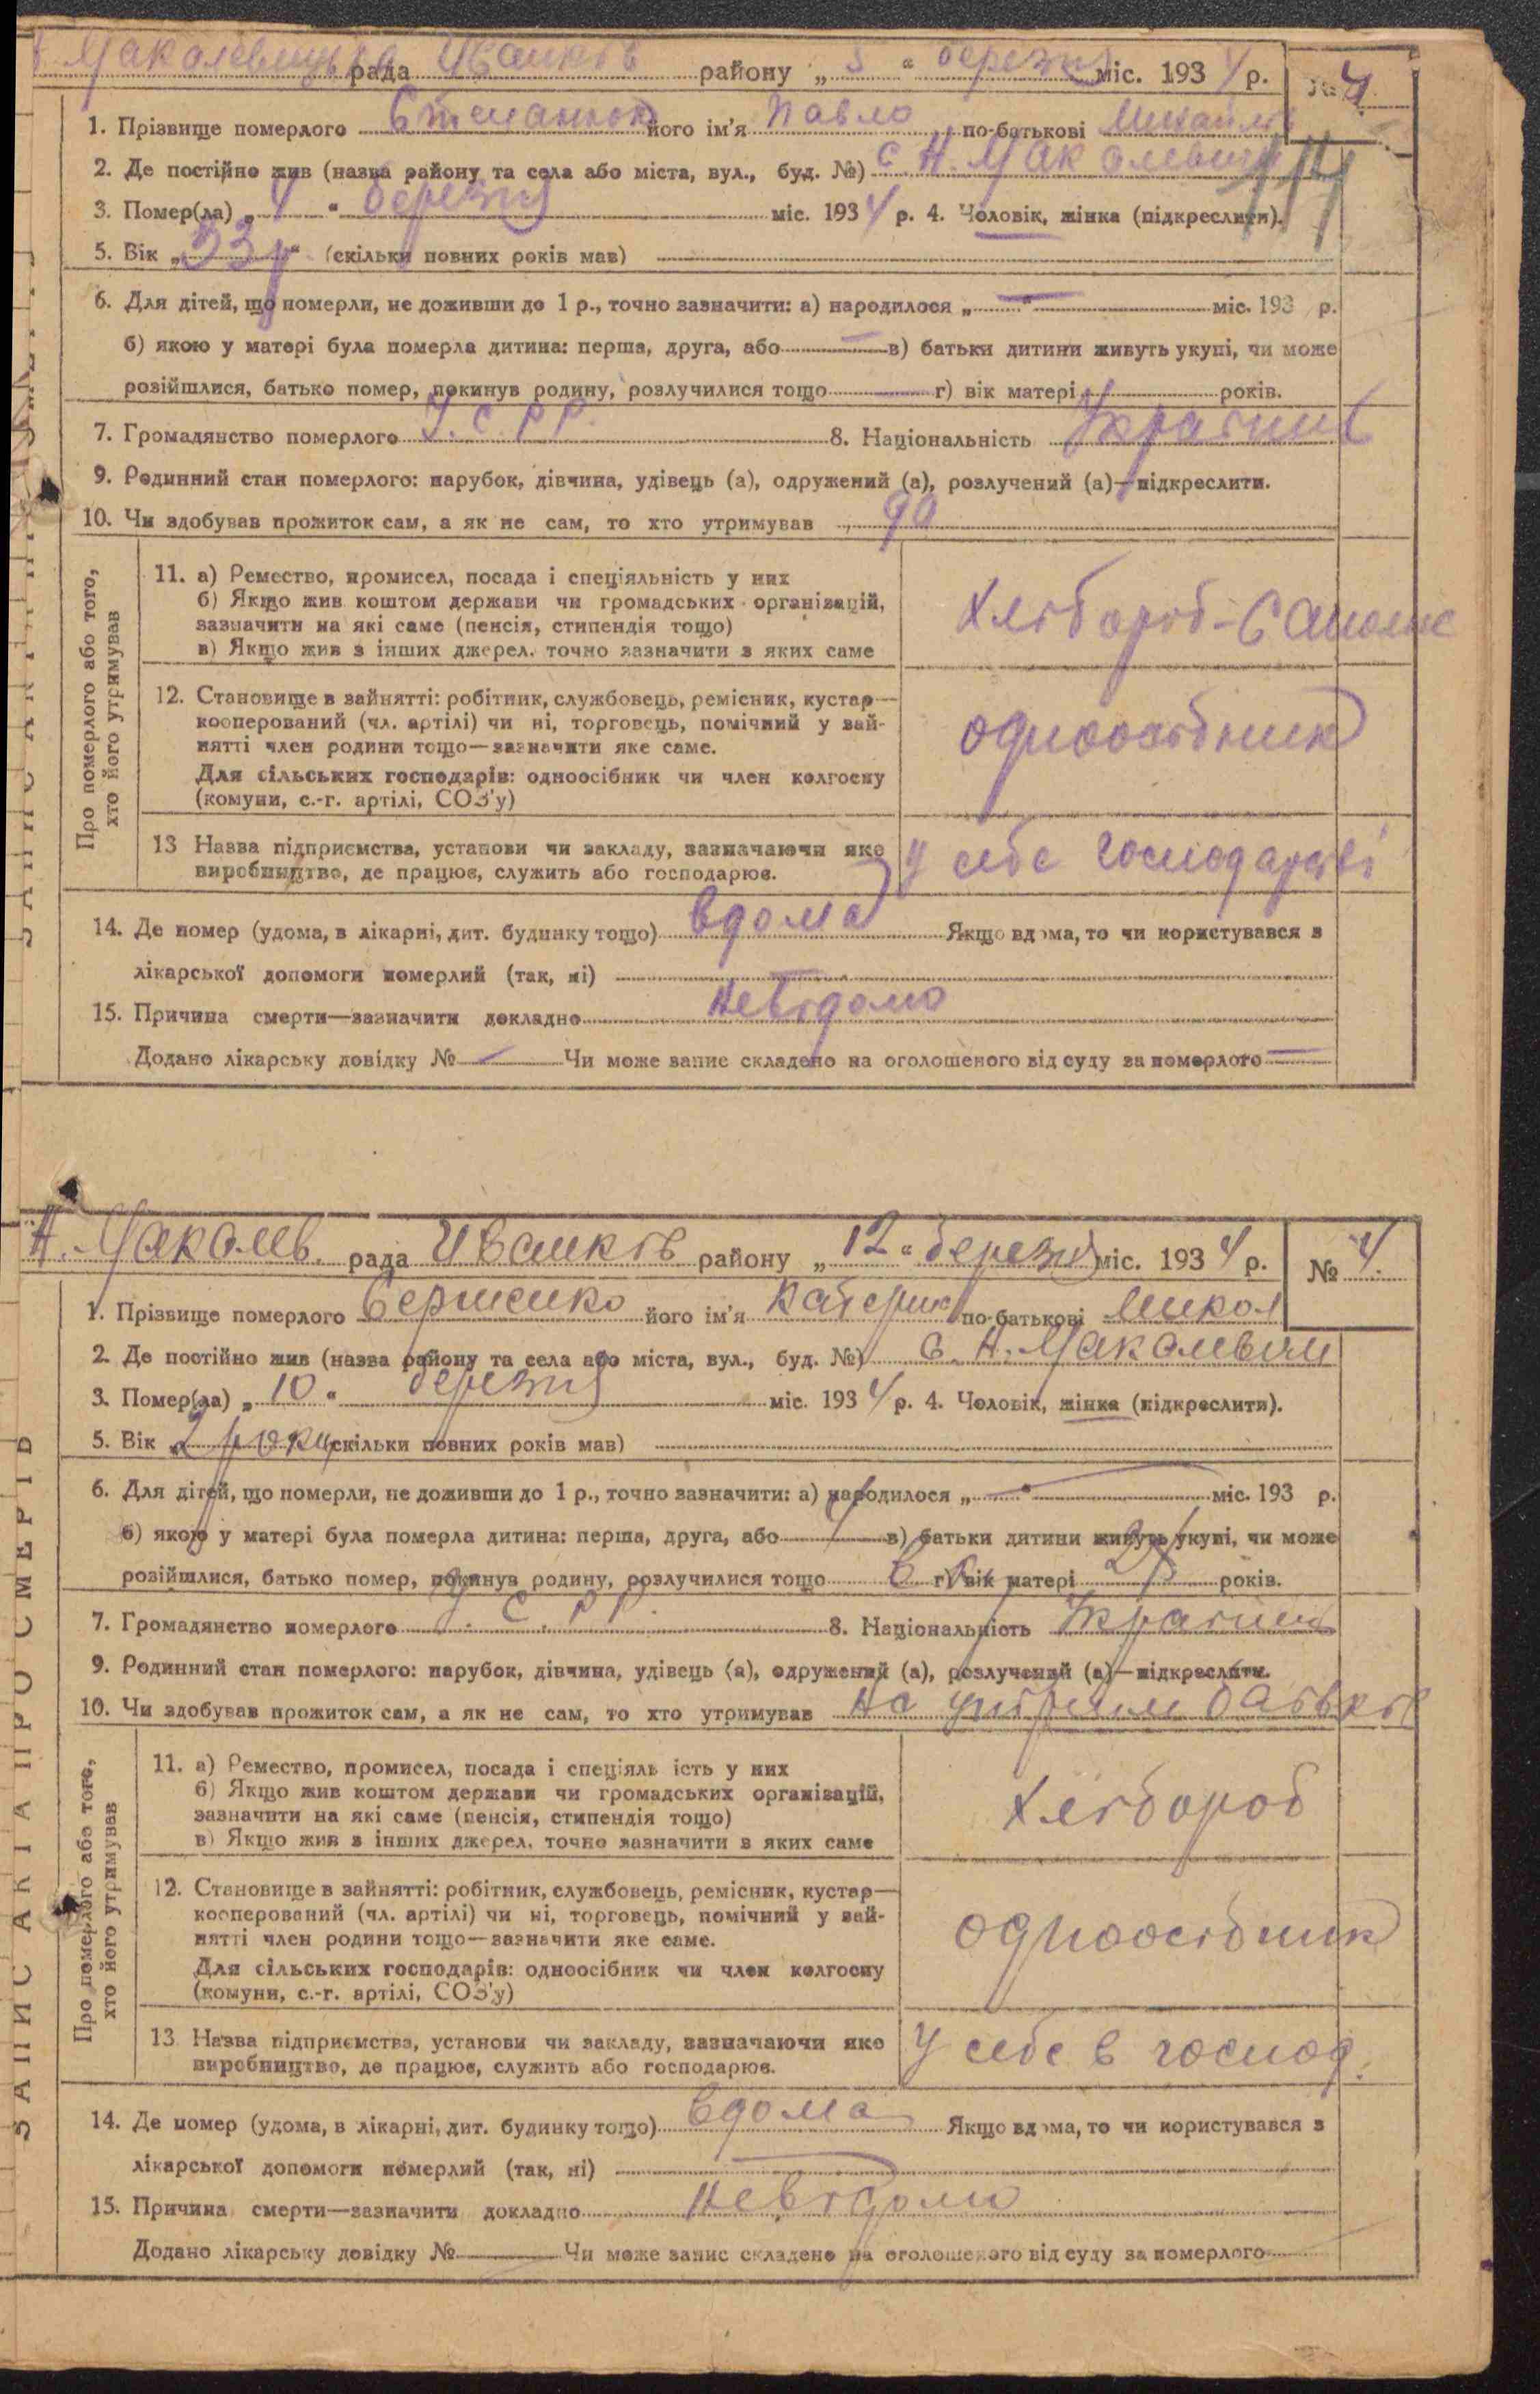 Макалевицька рада Иванків району „ 5 “ березня міс. 193 4 р. № 4
1. Прізвище померлого Степанюк його ім'я Павло по-батькові Михайл
2. Де постійно жив (назва району та села або міста, вул., буд. №) с Н. Макалевичі
3. Помер(ла) „ 4 “ березня міс. 193 4 р. 4. Чоловік, жінка (підкреслити).
5. Вік „ 53 р “ (скільки повних років мав)
6. Для дітей, що померли, не доживши до 1 р., точно зазначити: а) народилося „ — “ міс. 193 р.
б) якою у матері була померла дитина: перша, друга, або — в) батьки дитини живуть укупі, чи може
розійшлися, батько помер, покинув родину, розлучилися тощо г) вік матері років.
7. Громадянство померлого У. С. Р. Р. 8. Національність Українец
9. Родинний стан померлого: парубок, дівчина, удівець (а), одружений (а), розлучений (а)—підкреслити.
10. Чи здобував прожиток сам, а як не сам, то хто утримував да
Про померлого або того,
хто його утримував
11. а) Ремество, промисел, посада і спеціяльність у них
б) Якщо жив коштом держави чи громадських організацій,
зазначити на які саме (пенсія, стипендія тощо)
в) Якщо жив з інших джерел, точно зазначити з яких саме
Хлібороб-
12. Становище в зайнятті: робітник, службовець, ремісник, кустар—
кооперований (чл. артілі) чи ні, торговець, помічний у зай-
нятті член родини тощо—зазначити яке саме.
Для сільських господарів: одноосібник чи член колгоспу
(комуни, с.-г. артілі, СОЗ'у)
одноосібник
13 Назва підприємства, установи чи закладу, зазначаючи яке
виробництво, де працює, служить або господарює.
У себе господарстві
14. Де помер (удома, в лікарні, дит. будинку тощо) вдома Якщо вдома, то чи користувався з
лікарської допомоги померлий (так, ні)
15. Причина смерти—зазначити докладно невідомо
Додано лікарську довідку № — Чи може запис складено на оголошеного від суду за померлого —
ЗАПИС АКТА ПРО СМЕРТЬ
Н. Макалев. рада Иванків району „ 12 “ березня міс. 193 4 р. № 4.
1. Прізвище померлого його ім'я Катерина по-батькові Микол
2. Де постійно жив (назва району та села або міста, вул., буд. №) с. Н. Макалевичи
3. Помер(ла) „ 10 “ березня міс. 193 4 р. 4. Чоловік, жінка (підкреслити).
5. Вік „ 2 роки (скільки повних років мав)
6. Для дітей, що померли, не доживши до 1 р., точно зазначити: а) народилося „ — “ міс. 193 р.
б) якою у матері була померла дитина: перша, друга, або в) батьки дитини живуть укупі, чи може
розійшлися, батько помер, покинув родину, розлучилися тощо г) вік матері років.
7. Громадянство померлого У. С. Р. Р. 8. Національність
9. Родинний стан померлого: парубок, дівчина, удівець (а), одружений (а), розлучений (а)—підкреслити.
10. Чи здобував прожиток сам, а як не сам, то хто утримував на утрим батьків
Про померлого або того,
хто його утримував
11. а) Ремество, промисел, посада і спеціяль ість у них
б) Якщо жив коштом держави чи громадських організацій,
зазначити на які саме (пенсія, стипендія тощо)
в) Якщо жив з інших джерел, точно зазначити з яких саме
Хлібороб
12. Становище в зайнятті: робітник, службовець, ремісник, кустар—
кооперований (чл. артілі) чи ні, торговець, помічний у зай-
нятті член родини тощо—зазначити яке саме.
Для сільських господарів: одноосібник чи член колгоспу
(комуни, с.-г. артілі, СОЗ'у)
одноосібник
13 Назва підприємства, установи чи закладу, зазначаючи яке
виробництво, де працює, служить або господарює.
У себе в господ.
14. Де помер (удома, в лікарні, дит. будинку тощо) вдома Якщо вдома, то чи користувався з
лікарської допомоги померлий (так, ні)
15. Причина смерти—зазначити докладно невідомо
Додано лікарську довідку № Чи може запис складено на оголошеного від суду за померлого